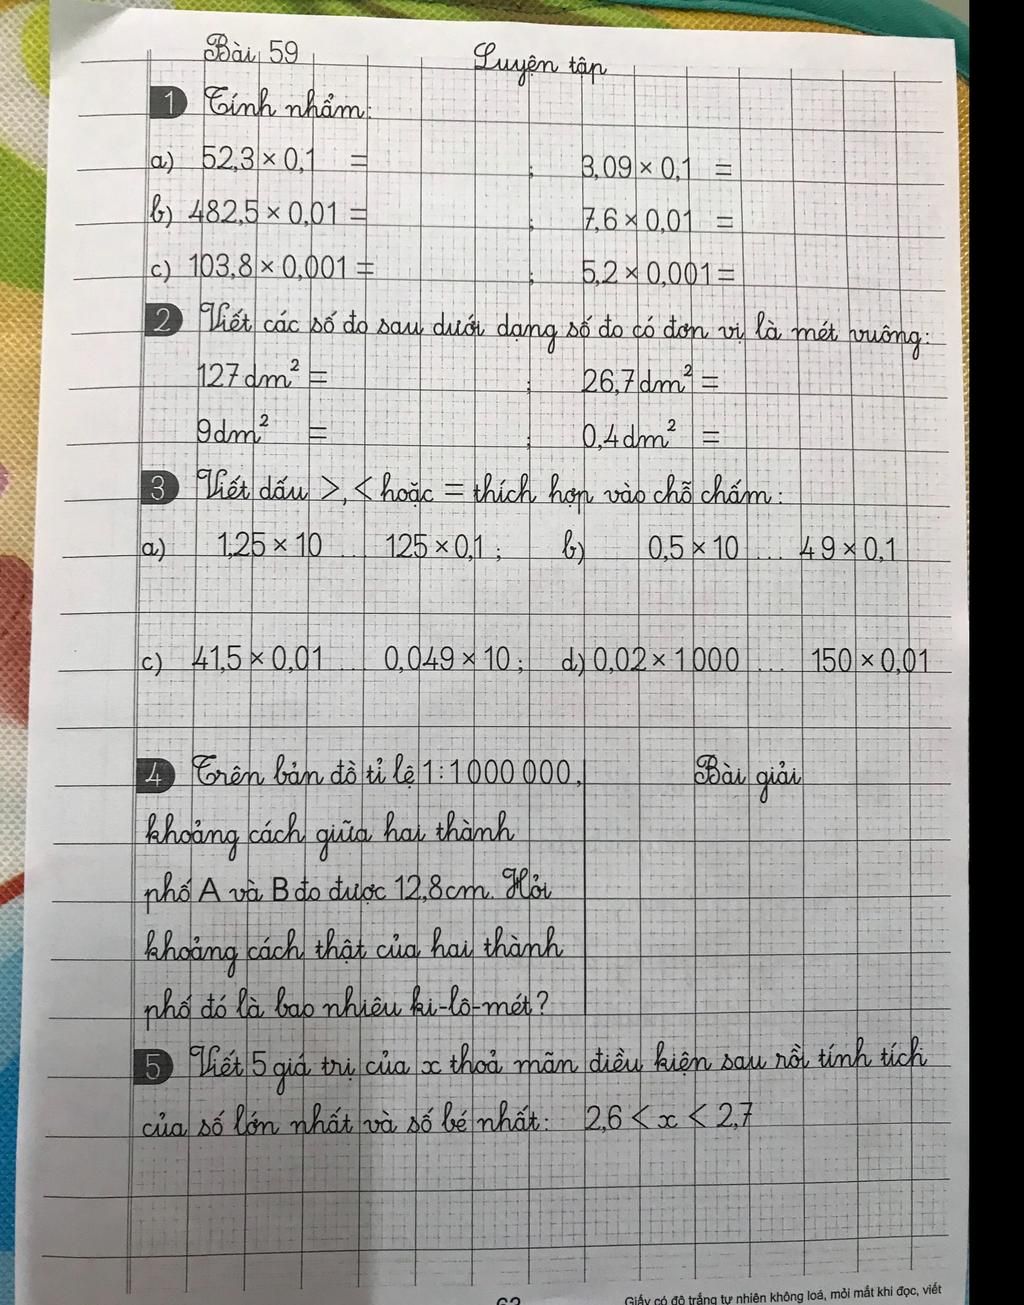 Bài 59 Luyện tập
1 Tính nhẩm:
a) 52,3 × 0,1 = ; 3,09 × 0,1 =
b) 482,5 × 0,01 = ; 7,6 × 0,01 =
c) 103,8 × 0,001 = ; 5,2 × 0,001 =
2 Viết các số đo sau dưới dạng số đo có đơn vị là mét vuông:
127 dm² = ; 26,7 dm² =
9 dm² = ; 0,4 dm² =
3 Viết dấu >, < hoặc = thích hợp vào chỗ chấm:
a) 1,25 × 10 ... 125 × 0,1 ; b) 0,5 × 10 ... 49 × 0,1
c) 41,5 × 0,01 ... 0,049 × 10 ; d) 0,02 × 1000 ... 150 × 0,01
4 Trên bản đồ tỉ lệ 1 : 1 000 000, Bài giải
khoảng cách giữa hai thành
phố A và B đo được 12,8cm. Hỏi
khoảng cách thật của hai thành
phố đó là bao nhiêu ki-lô-mét?
5 Viết 5 giá trị của x thoả mãn điều kiện sau rồi tính tích
của số lớn nhất và số bé nhất: 2,6 < x < 2,7
Giấy có độ trắng tự nhiên không loá, mỏi mắt khi đọc, viết